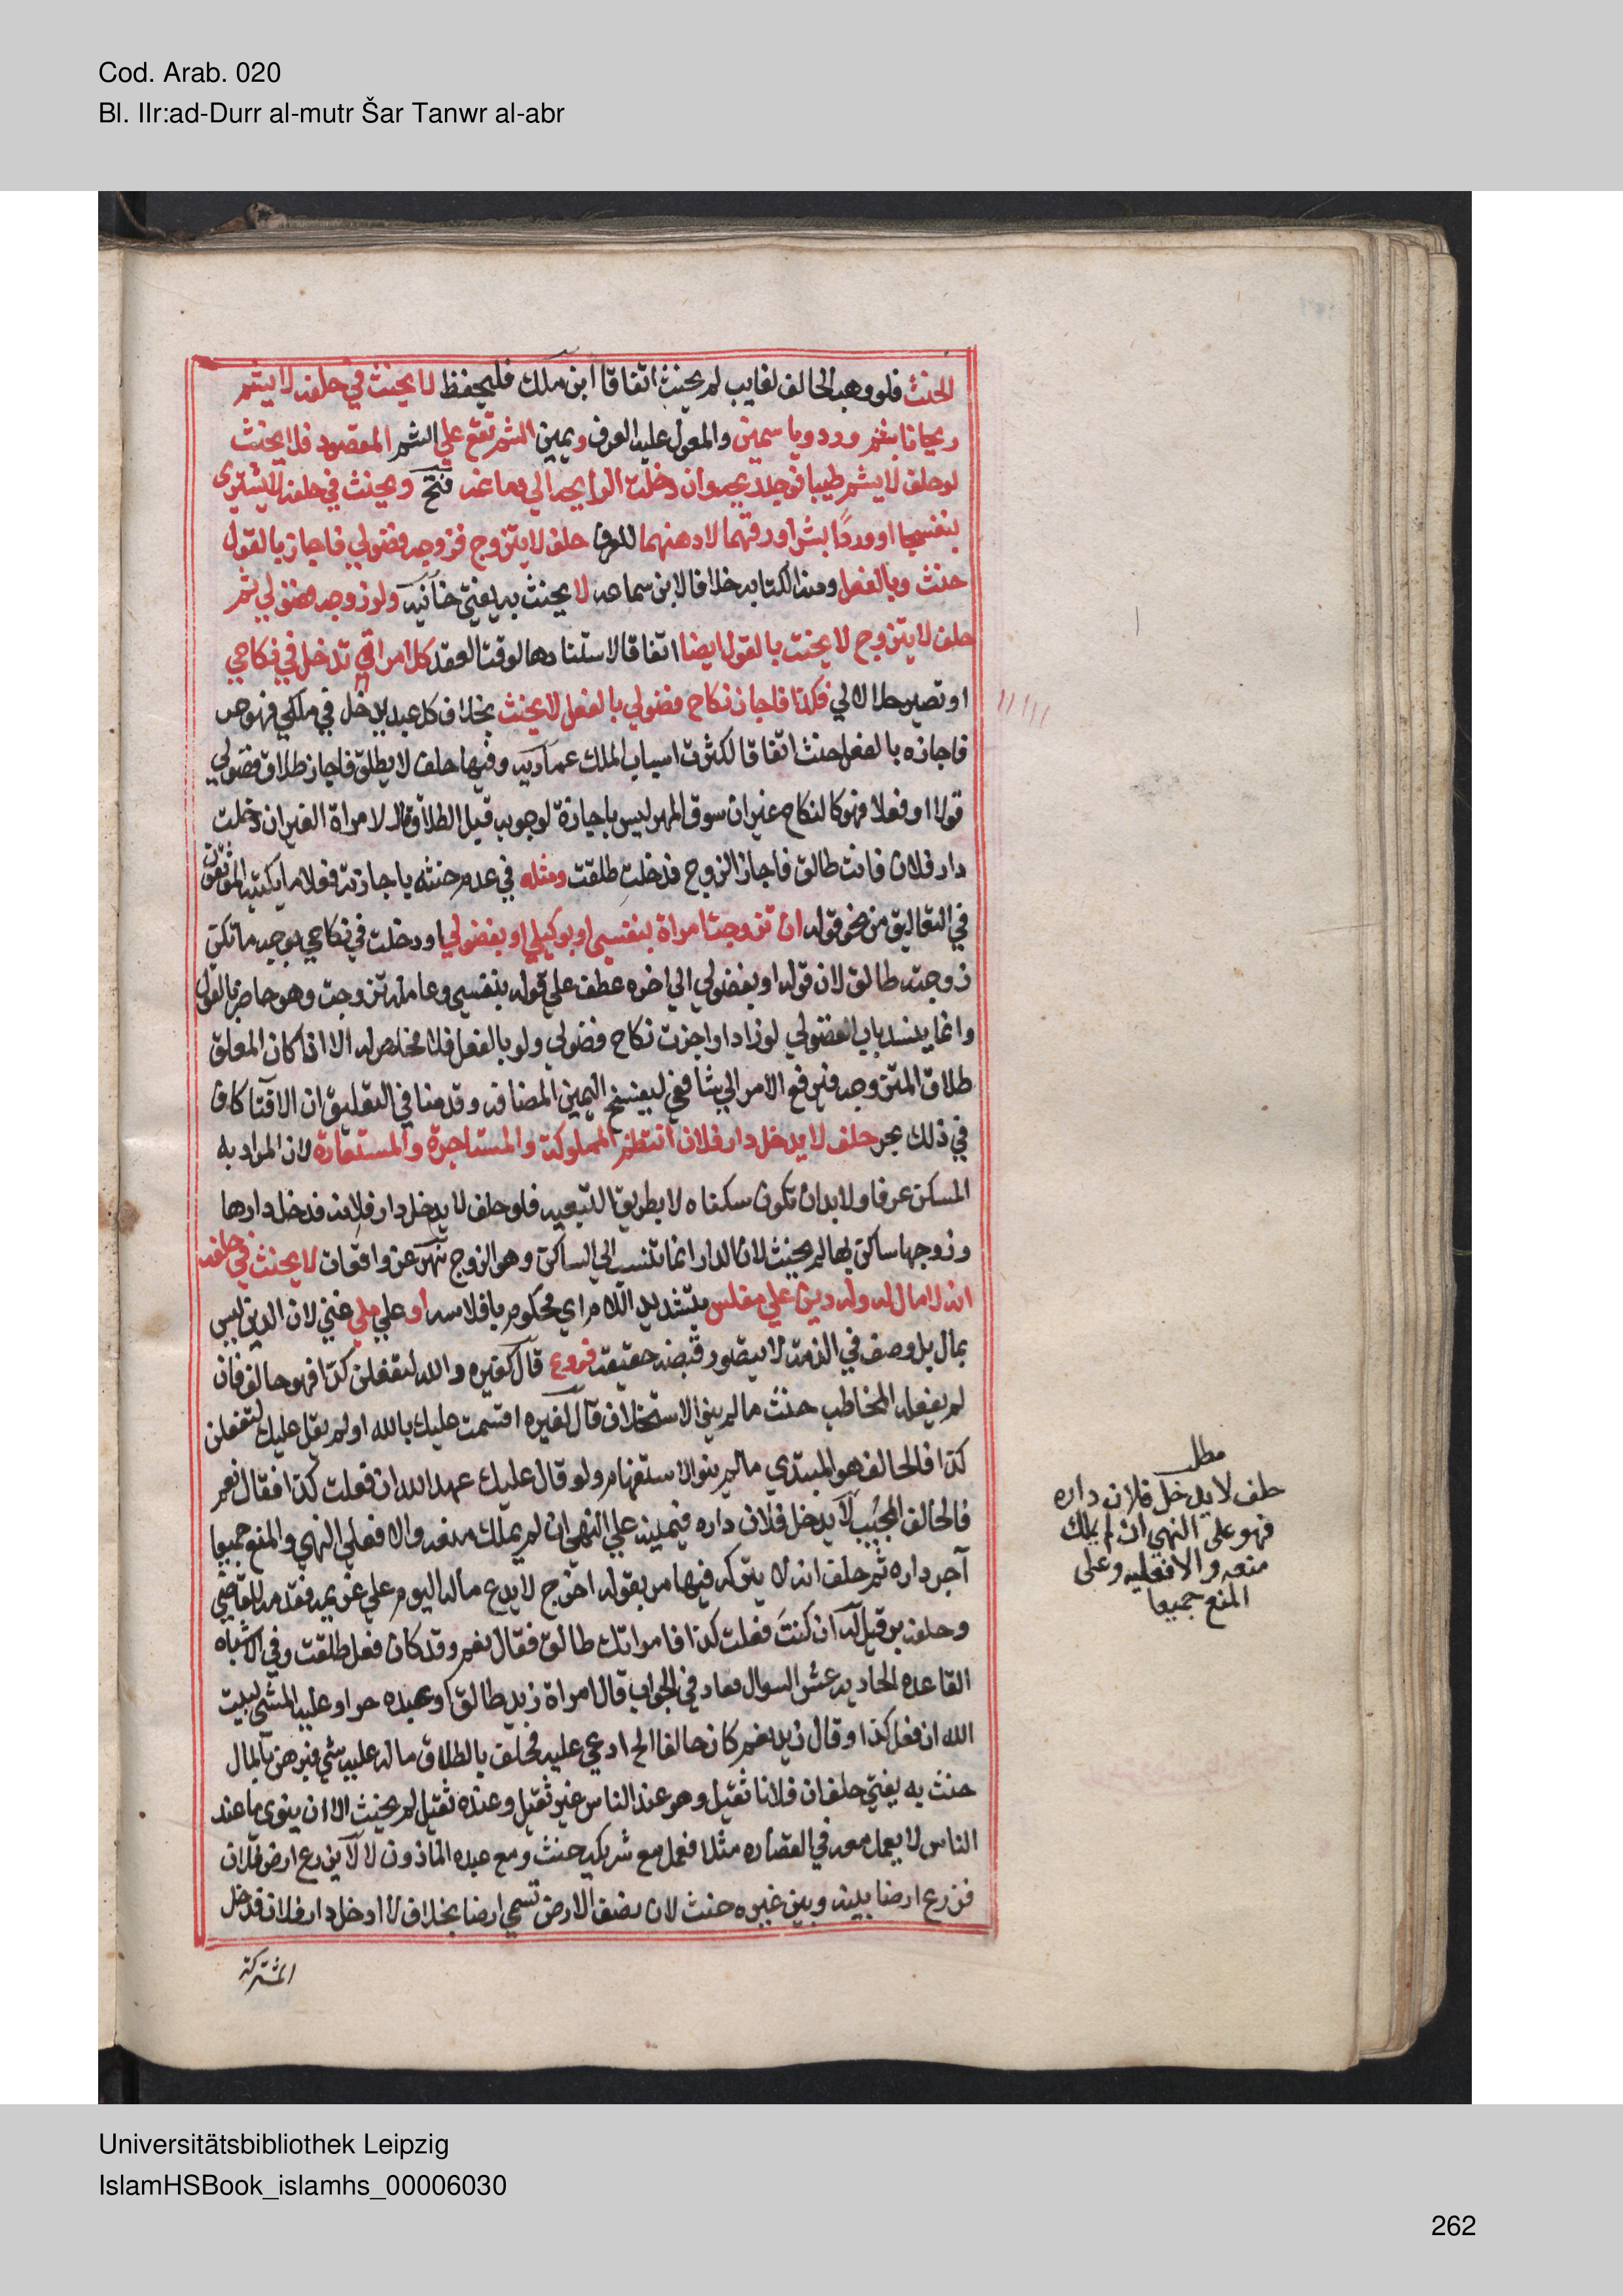 Cod. Arab. 020
Bl. IIr:ad-Durr al-mutr Šar Tanwr al-abr
الحنث فلو وهب الحالف لغايب لم يحنث اتفاقا ابن ملك فليحفظ لا يحنث في حلفه لا يشم
ريحانا بشم ورد وياسمين والمعول عليه العرف ويمين الشم تقع علي الشم المقصود فلا يحنث
لو حلف لا يشم طيبا فوجد ريحه وان دخلت الرايحه الي دماغه فتح ويحنث في حلفه لا يشتري
بنفسجا او وردًا بشرا ورقهما لا دهنهما للعرف حلف لا يتزوج فزوجه فضولي فاجاز بالقول
حنث وبالفعل ومنه الكتابه خلافا لابن سماعه لا يحنث به يفتي خانيه ولو زوجه فضولي ثم
حلف لا يتزوج لا يحنث بالقول ايضا اتفاقا لاستنادها لوقت العقد كل امراة تدخل في نكاحي
او تصير حلالا لي فكذا فاجاز نكاح فضولي بالفعل لا يحنث بخلاف كل عبد يدخل في ملكي فهو حر
فاجازه بالفعل حنث اتفاقا لكثرة اسباب الملك عماديه وفيها حلف لا يطلق فاجاز طلاق فضولي
قولا او فعلا فهو كالنكاح غير ان سوق المهر ليس باجازة لوجوبه قبل الطلاق قال لامراة الغير ان دخلت
دار فلان فانت طالق فاجاز الزوج فدخلت طلقت ومثله في عدم حنثه باجازته فعلا ما يكتبه الموثقون
في التعاليق من نحو قوله ان تزوجت امراة بنفسي او بوكيلي او بفضولي او دخلت في نكاحي بوجه ما تكن
زوجته طالق لان قوله او بفضولي الي اخره عطف علي قوله بنفسي وعامله تزوجت وهو خاص بالقول
وانما ينسد باب الفضولي لو زاد او اجزت نكاح فضولي ولو بالفعل فلا مخلص له الا اذا كان المعلق
طلاق المتزوجه فيرفع الامر الي شافعي ليفسخ اليمين المضافه وقدمنا في التعليق ان الافتا كاف
في ذلك بحر حلف لا يدخل دار فلان انتظم المملوكة والمستاجرة والمستعارة لان المراد به
المسكن عرفا ولا بد ان تكون سكناه لا بطريق التبعيه فلو حلف لا يدخل دار فلانه فدخل دارها
وزوجها ساكن بها لم يحنث لان الدار انما تنسب الي الساكن وهو الزوج نهر عن واقعات لا يحنث في حلفه
انه لا مال له وله دين علي مفلس بتشديد اللام اي محكوم بافلاسه او علي ملي غني لان الدين ليس
بمال بل وصف في الذمة لا يتصور قبضه حقيقة فروع قال لغيره والله لتفعلن كذا فهو حالف فان
لم يفعله المخاطب حنث ما لم ينو الاستحلاف قال لغيره اقسمت عليك بالله او لم يقل عليك لتفعلن
كذا فالحالف هو المبتدي ما لم ينو الاستفهام ولو قال عليك عهد الله ان فعلت كذا فقال نعم
فالحالف المجيب لا يدخل فلان داره فيمينه علي النهي ان لم يملك منعه والا فعلي النهي والمنع جميعا
آجر داره ثم حلف انه لا يتركه فيها بر بقوله اخرج لا يدع ماله اليوم علي غريمه فقدمه للقاضي
وحلفه بر قيل له ان كنت فعلت كذا فامراتك طالق فقال نعم وقد كان فعل طلقت وفي الاشباه
القاعدة الحاديه عشر السوال معاد في الجواب قال امراة زيد طالق او عبده حر او عليه المشي لبيت
الله ان فعل كذا وقال زيد نعم كان حالفا الخ ادعي عليه فحلف بالطلاق ما له عليه شي فبرهن بالمال
حنث به يفتي حلف ان فلانا ثقيل وهو عند الناس غير ثقيل وعنده ثقيل لم يحنث الا ان ينوي ما عند
الناس لا يعمل معه في القصاره مثلا فعمل مع شريكه حنث ومع عبده الماذون لا لا يزرع ارض فلان
فزرع ارضا بينه وبين غيره حنث لان نصف الارض تسمي ارضا بخلاف لا ادخل دار فلان فدخل
المشتركة
مطلب
حلف لا يدخل فلان داره
فهو على النهي ان لم يملك
منعه والا فعليه وعلى
المنع جميعا
Universitätsbibliothek Leipzig
IslamHSBook_islamhs_00006030
262